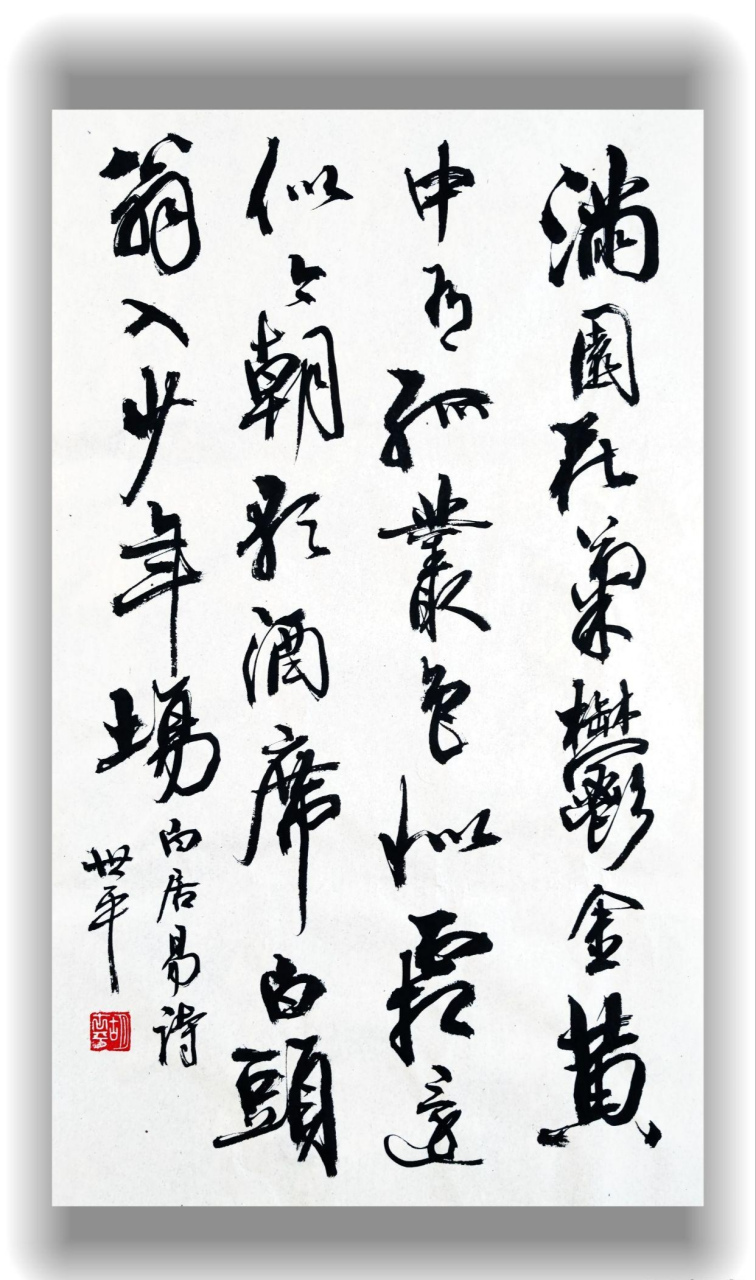 滿園花菊鬱金黃
中有孤叢色似霜還
似今朝歌酒席白頭
翁入少年場
白居易詩
世平
胡世平